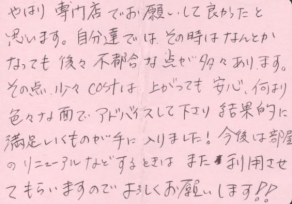 やはり 専門店でお願いして良かったと
思います。自分達では その時はなんとか
なっても 後々 不都合な点が多々あります。
その点、少々 costは 上がっても 安心、何より
色々な面で アドバイスして下さり 結果的に
満足いくものが手に入りました！ 今後は部屋
のリニューアルなどするときは また 利用させ
てもらいますので よろしくお願いします!!